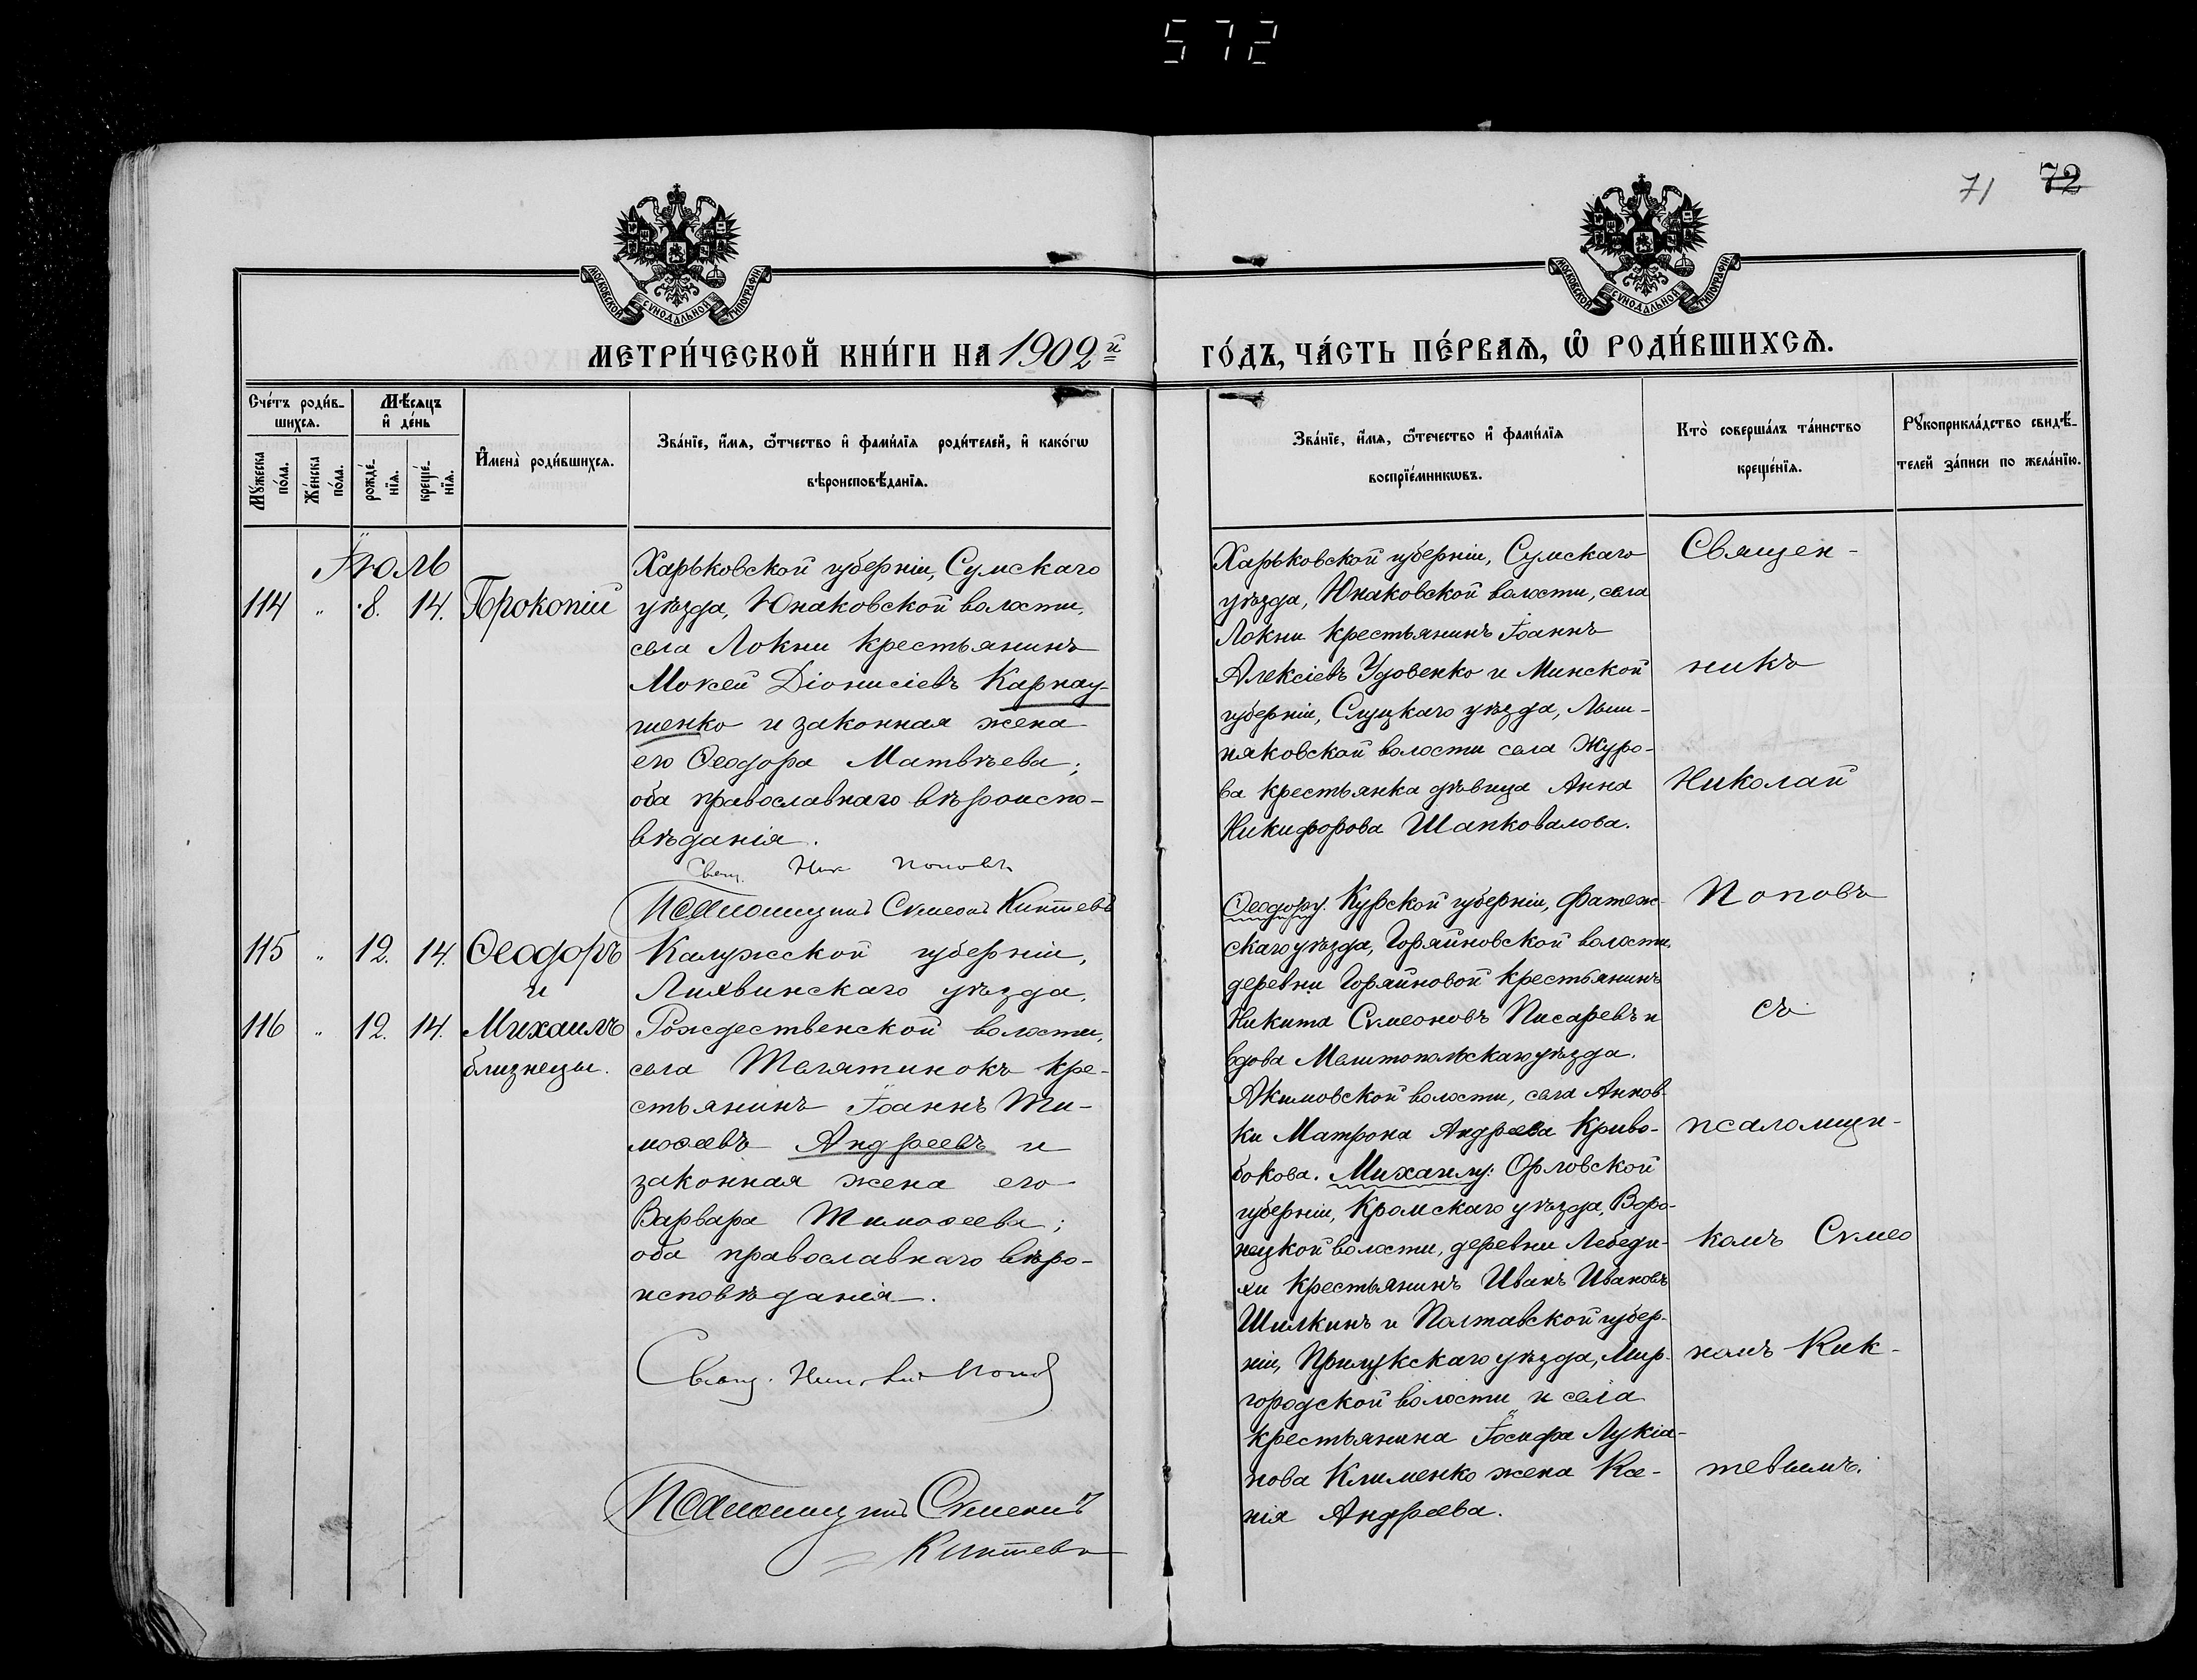 572
71 72
МОСКОВСКОЙ СѴНОДАЛЬНОЙ ТИПОГРАФІИ
МОСКОВСКОЙ СѴНОДАЛЬНОЙ ТИПОГРАФІИ
МЕТРИ́ЧЕСКОЙ КНИ́ГИ НА 1902й
ГО́ДЪ, ЧА́СТЬ ПЕ́РВАѦ, Ѡ РОДИ́ВШИХСѦ.
Сче́тъ роди́в-
шихсѧ.
Му́жеска
по́ла.
Же́нска
по́ла.
Мѣ́сяцъ
и҆ де́нь
рожде́-
нїѧ.
креще́-
нїѧ.
И҆мена̀ роди́вшихсѧ.
Зва́нїе, и҆́мѧ, ѻ҆́тчество и҆ фами́лїѧ роди́телей, и҆ како́гѡ
вѣроисповѣ́данїѧ.
Зва́нїе, и҆́мѧ, ѻ҆́течество и҆ фами́лїѧ
воспрїе́мникѡвъ.
Кто̀ соверша́лъ та́инство
креще́нїѧ.
Рꙋкоприкла́дство свидѣ́-
телей за́писи по жела́нїю.
Іюль
114 " 8. 14. Прокопій
Харьковской губерніи, Сумскаго
уѣзда, Юнаковской волости,
села Локни крестьянинъ
Моѵсей Діонисіевъ Карнау-
шенко и законная жена
его Ѳеодора Матвѣева;
оба православнаго вѣроиспо-
вѣданія.
Свящ. Ник Поповъ
Псаломщикъ Сѵмеонъ Киктевъ
Харьковской губерніи, Сумскаго
уѣзда, Юнаковской волости, села
Локни крестьянинъ Іоаннъ
Алексіевъ Удовенко и Минской
губерніи, Слуцкаго уѣзда,
няковской волости села Журо-
ва крестьянка дѣвица Анна
Никифорова Шапковалова.
115 " 12. 14. Ѳеодоръ
и
116 " 12. 14. Михаилъ
близнецы.
Калужской губерніи,
Лихвинскаго уѣзда,
Рождественской волости,
села Тегятинокъ кре-
стьянинъ Іоаннъ Ти-
моѳеевъ Андреевъ и
законная жена его
Варвара Тимоѳеева;
оба православнаго вѣро-
исповѣданія.
Свящ. Николай Поповъ
Псаломщикъ Сѵмеонъ
Киктевъ
Ѳеодору: Курской губерніи, Фатеж-
скаго уѣзда, Горяйновской волости,
деревни Горяйновой крестьянинъ
Никита Сѵмеоновъ Писаревъ и
вдова Мелитопольскаго уѣзда,
Акимовской волости, села Аннов-
ки Матрона Андреева Криво-
бокова. Михаилу: Орловской
губерніи, Кромскаго уѣзда, Воро-
нецкой волости, деревни Лебеди-
хи крестьянинъ Иванъ Ивановъ
Шилкинъ и Полтавской губер-
ніи, Прилукскаго уѣзда, Мир-
городской волости и села
крестьянина Іосифа Лукіа-
нова Клименко жена Ксе-
нія Андреева.
Священ-
никъ
Николай
Поповъ
съ
псаломщи-
комъ Сѵмео
номъ Кик-
тевымъ.